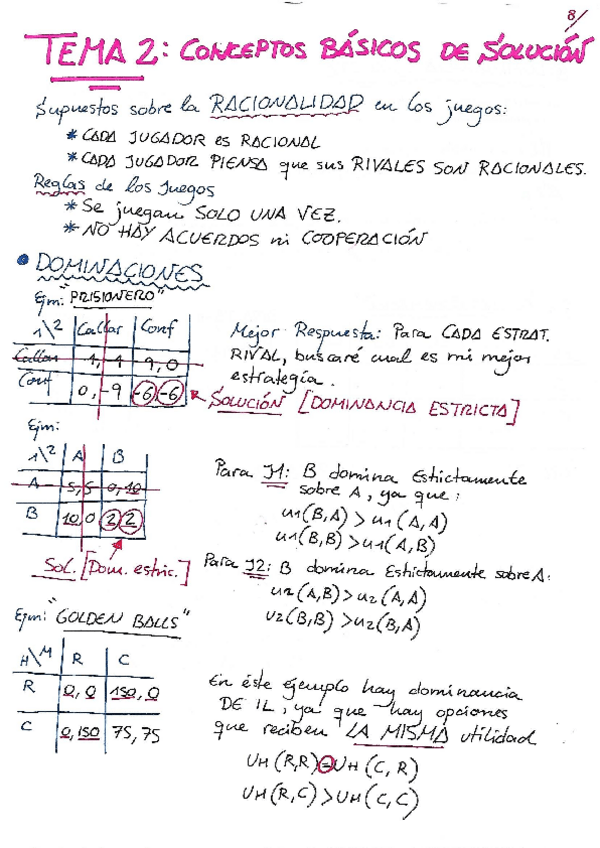 8/
TEMA 2: CONCEPTOS BÁSICOS DE SOLUCIÓN
Supuestos sobre la RACIONALIDAD en los juegos:
* CADA JUGADOR es RACIONAL
* CADA JUGADOR PIENSA que sus RIVALES SON RACIONALES.
Reglas de los Juegos
* Se juegan SOLO UNA VEZ.
* NO HAY ACUERDOS ni COOPERACIÓN
• DOMINACIONES
Ejm: "PRISIONERO"
1\2 Callar Conf
Callar -1, -1 -9, 0
Conf 0, -9 -6 -6
Mejor Respuesta: Para CADA ESTRAT.
RIVAL, buscaré cual es mi mejor
estrategia.
SOLUCIÓN [DOMINANCIA ESTRICTA]
Ejm:
1\2 A B
A 5,5 0,10
B 10,0 2 2
Sol. [Dom. estric.]
Para J1: B domina Estrictamente
sobre A, ya que:
u1(B,A) > u1(A,A)
u1(B,B) > u1(A,B)
Para J2: B domina Estrictamente sobre A:
u2(A,B) > u2(A,A)
u2(B,B) > u2(B,A)
Ejm: "GOLDEN BALLS"
H\M R C
R 0,0 150,0
C 0,150 75,75
En éste ejemplo hay dominancia
DE IL, ya que hay opciones
que reciben LA MISMA utilidad
UH(R,R) = UH(C,R)
UH(R,C) > UH(C,C)